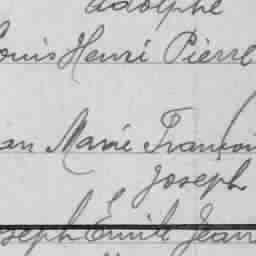 Adolphe
ouis Henri Pierre
an Marie François
Joseph
seph Emile Jean